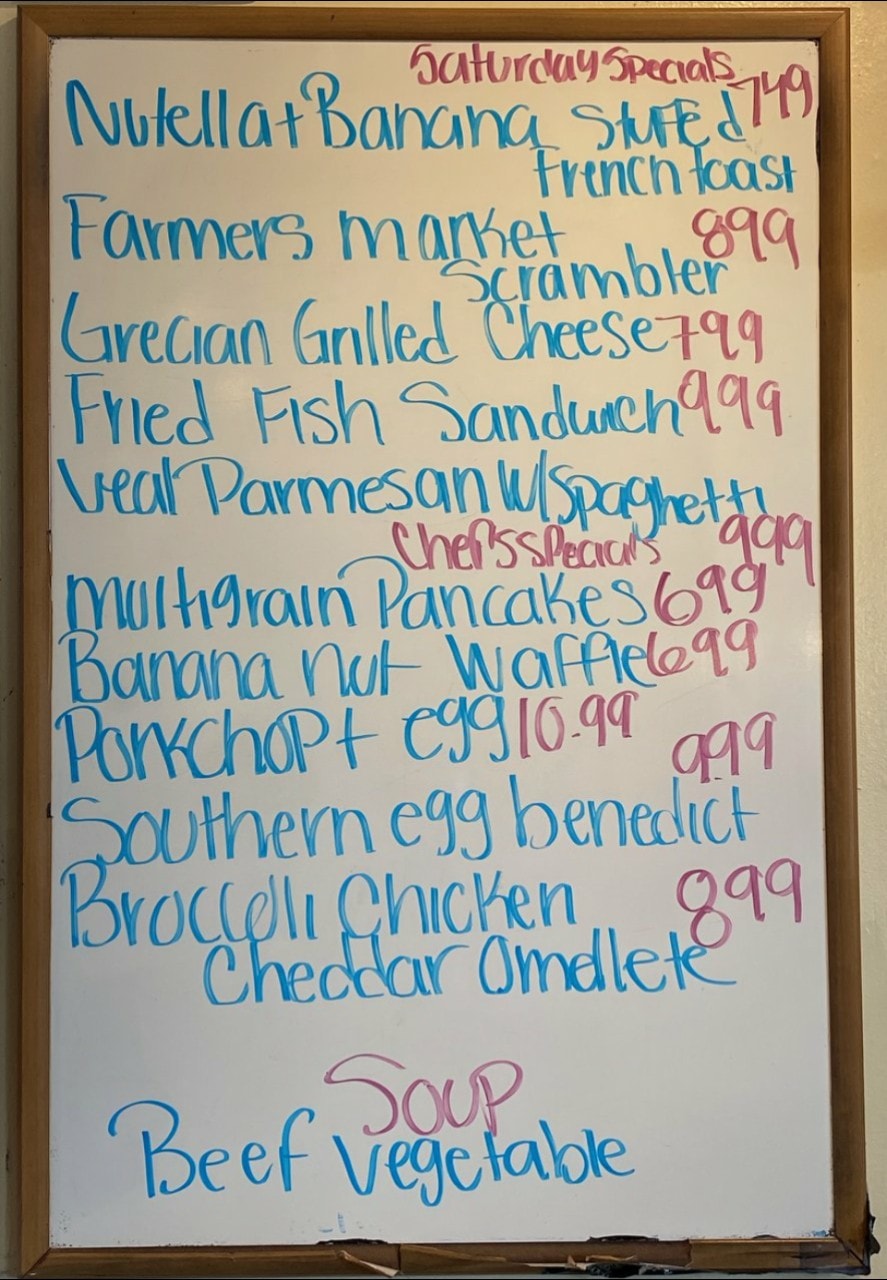 Saturday Specials
Nutella + Banana Stuffed 749
French toast
Farmers market 899
Scrambler
Grecian Grilled Cheese 799
Fried Fish Sandwich 999
Veal Parmesan W/Spaghetti
Chef's Specials 999
Multigrain Pancakes 699
Banana nut Waffle 699
Porkchop + egg 10.99
999
Southern egg benedict
Broccoli Chicken 899
Cheddar Omelete
Soup
Beef Vegetable